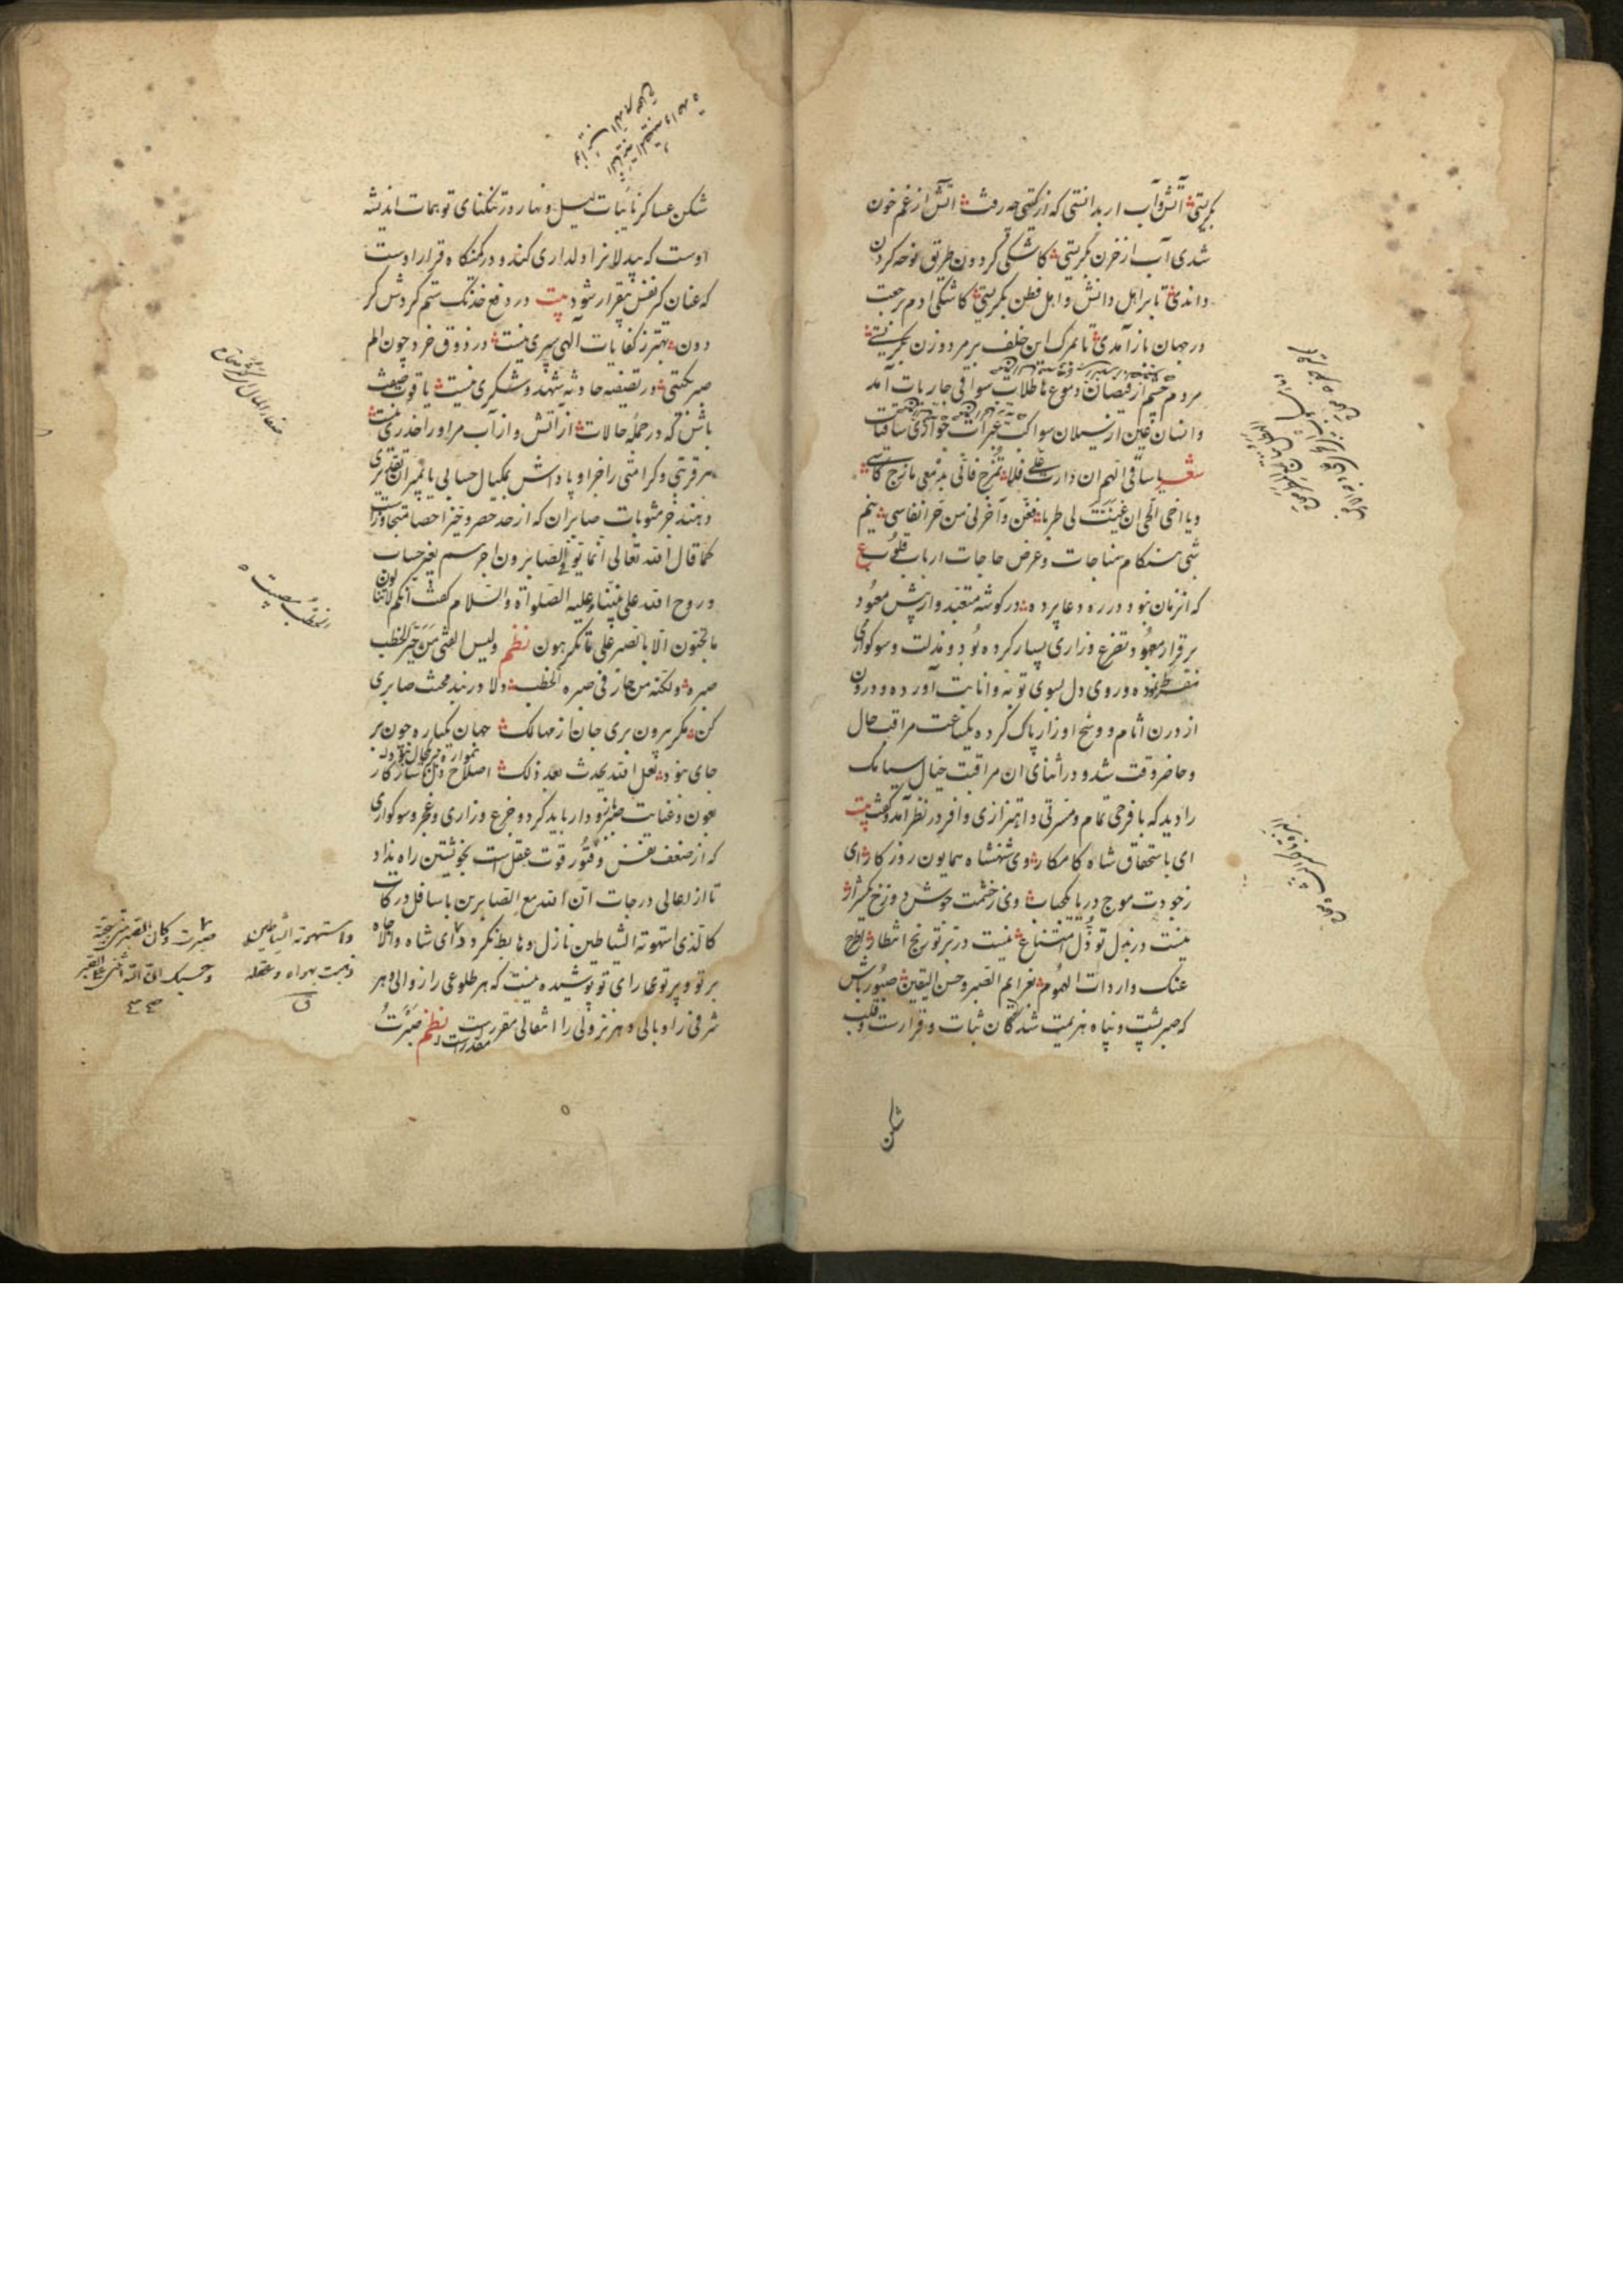 بگریستی آتش و آب ار بدانستی که از گیتی چه رفت آتش از غم خون
شدی آب از حزن بگریستی کاشکی گردون طریق نوحه کردن
داندی تا بر اهل دانش و اهل فطن بگریستی کاشکی آدم برجعت
در جهان باز آمدی تا بمرگ این خلف بر مرد و زن بگریستی
مردم چشم از فیضان دموع هاطلات سواقی جاریات آمد
وانسان عین از سیلان سواکب عبرات جواری ساقیات
شعر یا ساقی الهم ان دارت علی فلا تمزج فانی بدمعی مازج کاسی
ویا اخی الحی ان غنیت لی طربا فغن وآخرنی من حر انفاسی نیم
شبی هنگام مناجات وعرض حاجات ارباب قلوب ع
که آنزمان نبود در ره دعا پرده در گوشه متعبد وارپیش معبود
برقرار معهود تضرع وزاری بسیار کرده بود ومذلت وسوکواری
نموده وروی دل بسوی توبه وانابت آورده ودرون
از درن آثام ووسخ اوزار پاک کرده یکساعت مراقب حال
وحاضر وقت شد ودر اثنای ان مراقبت خیال سیامک
را دید که با فرحی تمام ومسرتی واهتزازی وافر در نظر آمد وگفت بیت
ای باستحقاق شاه کامکار وی شهنشاه همایون روزکار ای
ز جودت موج دریا یک حباب وی ز خشمت جوش دوزخ یک شرار
نیست در بذل تو ذل امتناع نیست در بر تو رنج انتظار اطرح
عنک واردات الهموم بعزایم الصبر وحسن الیقین صبور باش
که صبر پشت وپناه هزیمت شدگان ثبات وقرارست وقلب
شکن
شکن عساکر نایبات لیل ونهار ودر تنگنای توهمات اندیشه
اوست که بیدلانرا دلداری کند ودر کمنگاه قرار اوست
که عنان کر نفس بیقرار شود بیت در دفع خدنک ستم گردش گر
دون بهتر ز کفایات الهی سپری نیست در ذوق خرد چون الم
صبر بکشتی در تصفیه حادثه شهد وشکری نیست یاقوت صفت
باش که در جمله حالات از آتش واز آب مر اورا حذری نیست
هر قربتی وکرامتی را جزا و پاداش بمکیال حسابی یا بمیزان تقدیری
دهند جز مثوبات صابران که از حد حصر وحیز احصا متجاوزست
کما قال الله تعالی انما یوفی الصابرون اجرهم بغیر حساب
وروح الله علی نبینا وعلیه الصلواة والسلام گفت انکم لا تنالون
ما تحبون الا بالصبر علی ما تکرهون نظم ولیس الفتی من حیر الخطب
صبره ولکنه من حار فی صبره الخطب دلا در بند محنت صابری
کن مگر بیرون بری جان از مهالک جهان یکباره چون بر
جای نبود لعل الله یحدث بعد ذلک اصلاح ذلک ساز کار
بعون وعنایت باید کرد وجزع وزاری وعجز وسوکواری
که از ضعف نفس وفتور قوت عقل است بخویشتن راه نداد
تا از اعالی درجات ان الله مع الصابرین باسافل درکات
کالذی استهوته الشیاطین نازل وهابط نگردد ای شاه والا جاه
بر تو وپرتو رای تو پوشیده نیست که هر طلوعی را زوالی وهر
شرفی را وبالی وهر نزولی را انتقالی مقررست ومقدرست نظم صبرت
واستهوته الشیاطین
ذهبت بهواه وعقله
ق
الخطب مصیبت